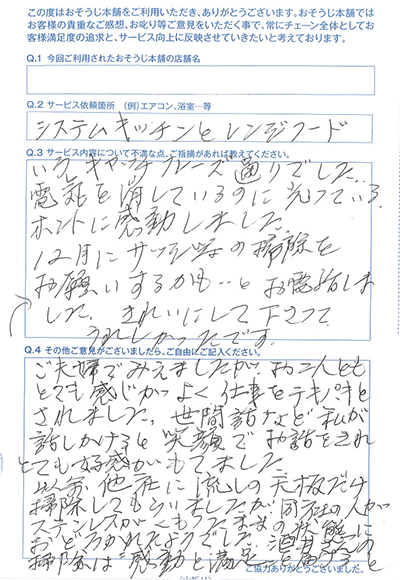 この度はおそうじ本舗をご利用いただき、ありがとうございます。おそうじ本舗では
お客様の貴重なご感想、お叱り等ご意見をいただく事で、常にチェーン全体としてお
客様満足度の追求と、サービス向上に反映させていきたいと考えております。
Q.1 今回ご利用されたおそうじ本舗の店舗名
Q.2 サービス依頼箇所 (例)エアコン、浴室…等
システムキッチンとレンジフード
Q.3 サービス内容について不満な点、ご指摘があれば教えてください。
いえ キャッチフレーズ通りでした…
電話を消しているのに光っている
ホントに感動しました。
12月にサッシ等の掃除を
お願いするかも…とお電話しま
した。きれいにして下さって
うれしかったです。
Q.4 その他ご意見がございましたら、ご自由にご記入ください。
ご夫婦でみえましたが、お二人とも
とても感じがよく仕事をテキパキと
されました。世間話など私が
話しかけても笑顔でお話をされ
とても好感がもてました。
以前他社に流しの天板だけ
掃除してもらいましたが、同社の人が
ステンレスがくもったままの状態に
おどろかれたようでした。
掃除は"感動と満足"
ご協力ありがとうございました。